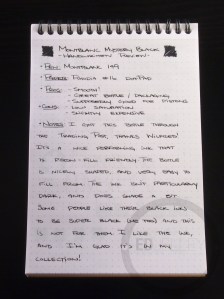 MONTBLANC MYSTERY BLACK
- HANDWRITTEN REVIEW -
- PEN: MONTBLANC 149
- PAPER: RHODIA #16 DOTPAD
- PROS: - SMOOTH!
- GREAT BOTTLE / PACKAGING
- SUPPOSEDLY GOOD FOR PISTONS
- CONS: - LOW SATURATION
- SLIGHTLY EXPENSIVE
- NOTES: I GOT THIS BOTTLE THROUGH
THE TRADING POST, THANKS WILFRED!
IT'S A NICE PERFORMING INK THAT
IS PISTON-FILL FRIENDLY. THE BOTTLE
IS NICELY SHAPED, AND VERY EASY TO
FILL FROM. THE INK ISN'T PARTICULARLY
DARK, AND DOES SHADE A BIT.
SOME PEOPLE LIKE THEIR BLACK INKS
TO BE SUPER BLACK (LIKE ME) AND THIS
IS NOT FOR THEM. I LIKE THIS INK,
AND I'M GLAD IT'S IN MY
COLLECTION!